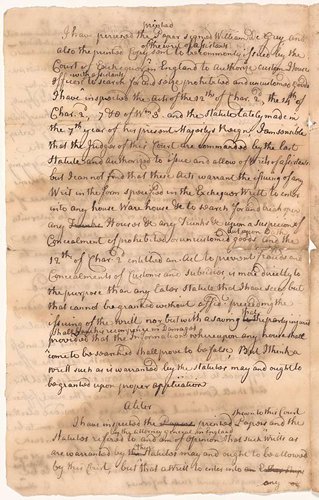 printed
I have perused the Paper signed William De Grey and
of the writ of assistants
also the printed Copy said to be commonly issued by the
Court of Exchequer in England to Authorize custom House
with assistants
officers to search for and seize prohibited and uncustomed goods
I have inspected the Acts of the 12th of Char. 2, the 14th of
Char. 2, 7 & 8 of Wm 3d. and the Statute lately made in
the 7th year of his present Majestys Reign. I am sensible
that the Judges of this Court are commanded by the last
Statute and Authorized to issue and allow of Writs of assistants
but I can not find that these Acts warrant the issuing of any
Writ in the form specified in the Exchequer Writ to enter
into any house Ware house &c to search for and break open
any Trunks Houses &c any Trunks &c upon a Suspicion of
Concealment of prohibited or uncustomed goods and the
12th of Char. 2d entitled an Act to prevent frauds and
Concealments of Customs and Subsidies is more directly to
the purpose than any Later Statute that I have seen but
that cannot be granted without previous the
issuing of the Writ nor but with a saving that the party injured
Shall recompense in Damages
provided that the Information whereupon any house shall
come to be searched shall prove to be false, But I think a
Writ such as is warranted by the Statutes may and ought to
be granted upon proper application
Aliter
shewn to this Court
I have inspected the printed Papers and the
by the attorney general in England
Statutes referred to and am of opinion that such Writs as
are warranted by Statutes may and ought to be allowed
by this Court, but that a Writ to enter into
any